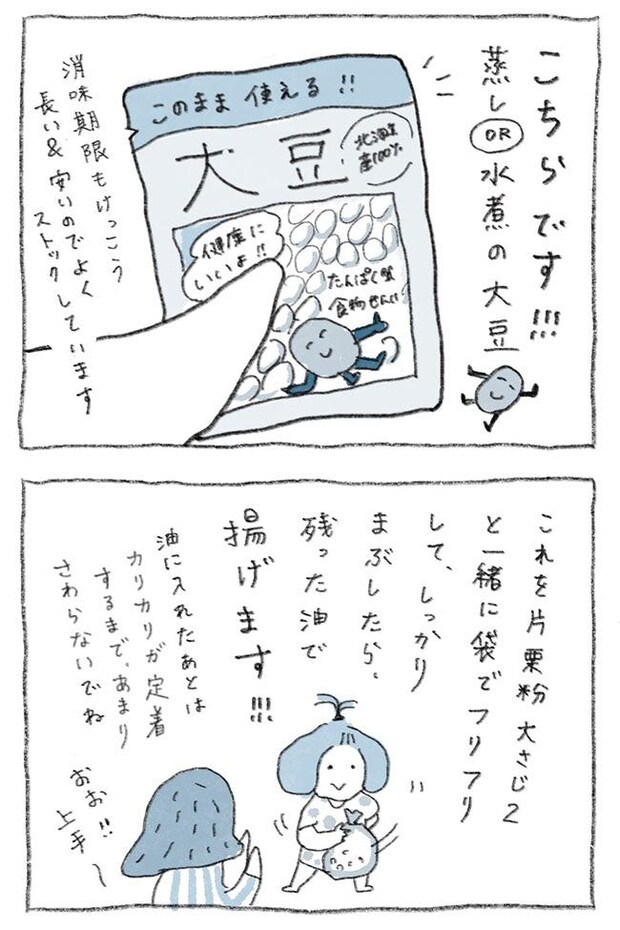 こちらです!!!
蒸し OR 水煮の大豆
このまま使える!!
大豆
北海道
産100%
健康に
いいよ!!
たんぱく質
食物せんい
消味期限もけっこう
長い&安いのでよく
ストックしています
これを片栗粉大さじ2
と一緒に袋でフリフリ
して、しっかり
まぶしたら、
残った油で
揚げます!!!
油に入れたあとは
カリカリが定着
するまで、あまり
さわらないでね
おお!!
上手〜